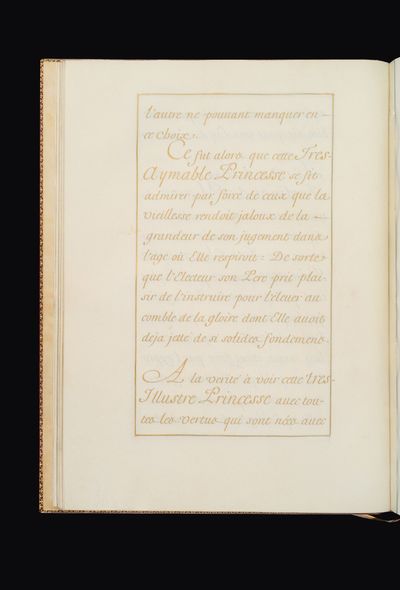 l'autre ne pouuant manquer en-
ce choix.
Ce fut alors que cette Tres-
Aymable Princesse se fit
admirer par force de ceux que la
vieillesse rendoit jaloux de la
grandeur de son jugement dans
l'age où Elle respiroit: De sorte
que l'Electeur son Pere prit plai-
sir de l'instruire pour l'éleuer au
comble de la gloire dont Elle auoit
deja jetté de si solides fondemens.
A la verité à voir cette tres-
Illustre Princesse auec tou-
tes les vertus qui sont nées auec